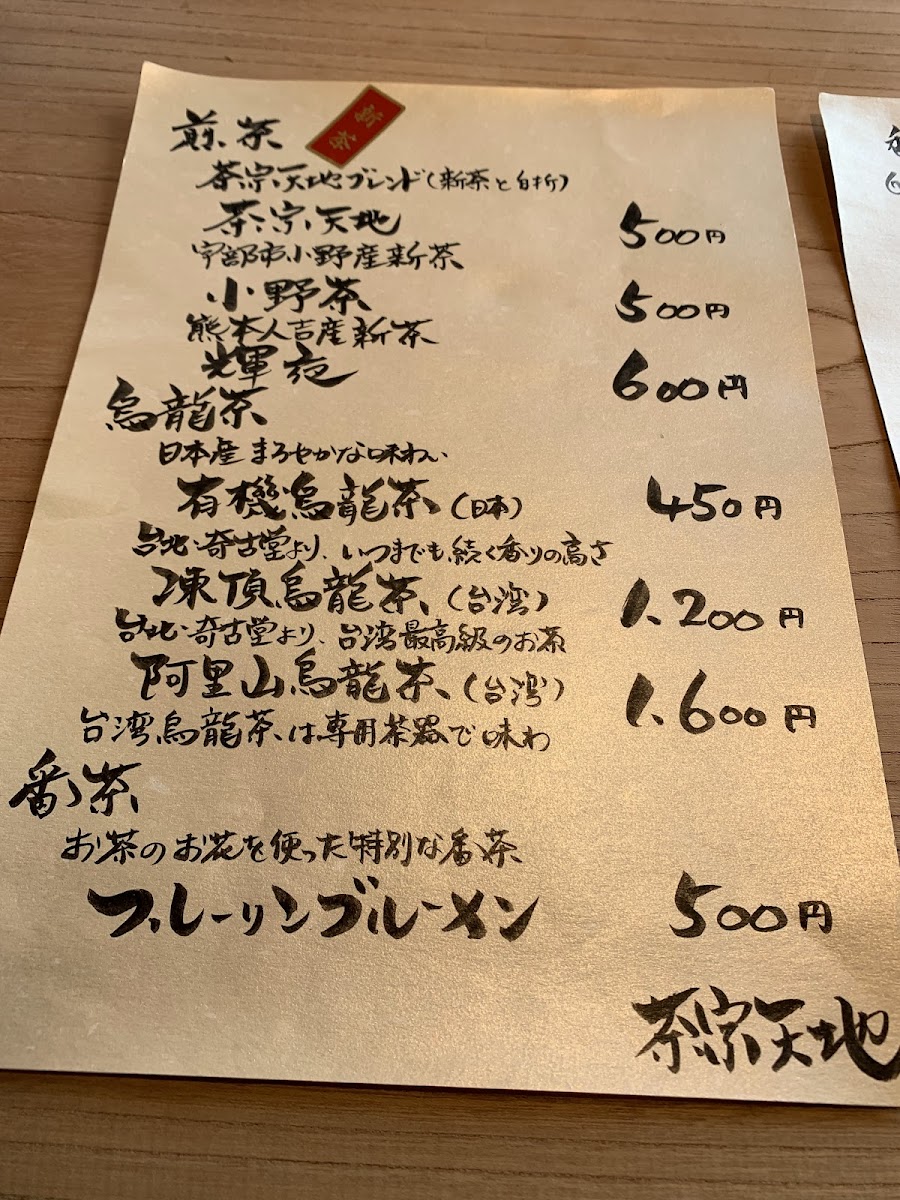 煎茶
新茶
茶宗天地ブレンド(新茶と白折)
茶宗天地 500円
宇部市小野産新茶
小野茶 500円
熊本人吉産新茶
輝夜 600円
烏龍茶
日本産 まろやかな味わい
有機烏龍茶(日本) 450円
台北:奇古堂より、いつまでも続く香りの高さ
凍頂烏龍茶(台湾) 1,200円
台北:奇古堂より、台湾最高級のお茶
阿里山烏龍茶(台湾) 1,600円
台湾烏龍茶は専用茶器で味わ
番茶
お茶のお花を使った特別な番茶
フレーリンブルーメン 500円
茶宗天地